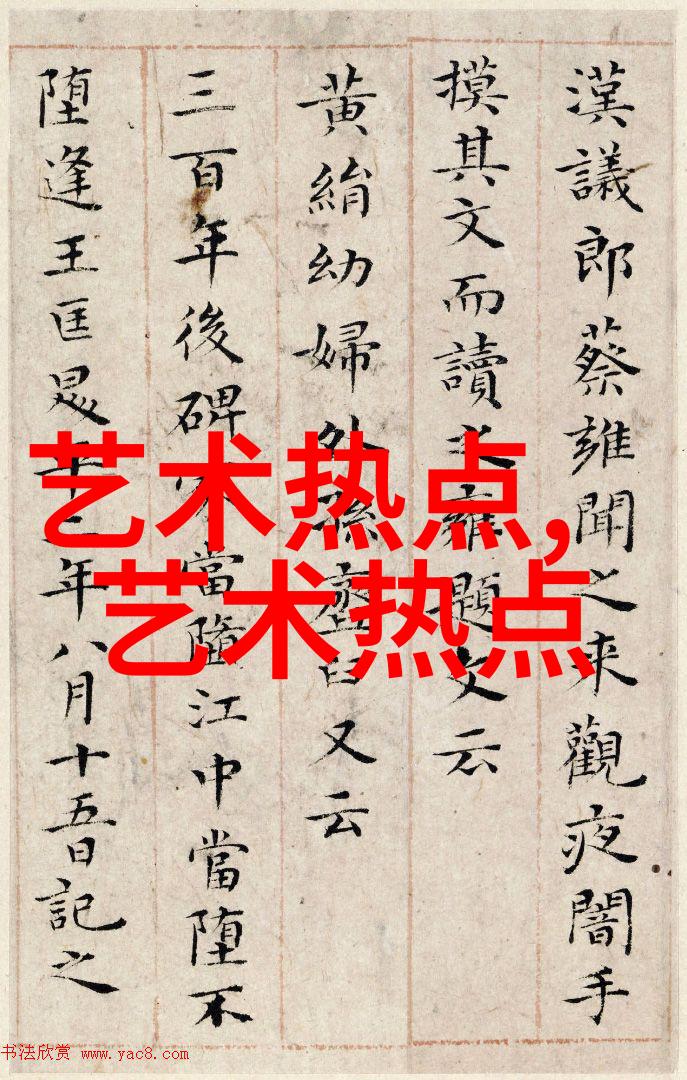 漢議郎蔡雍聞之来觀夜闇手
摸其文而讀之雍題文云
黄絹幼婦外孫臼又云
三百年後碑當墮江中當堕不
堕逢王匡平二年八月十五日記之
艺术热点,
艺术热点
书法欣赏 www.yac8.com